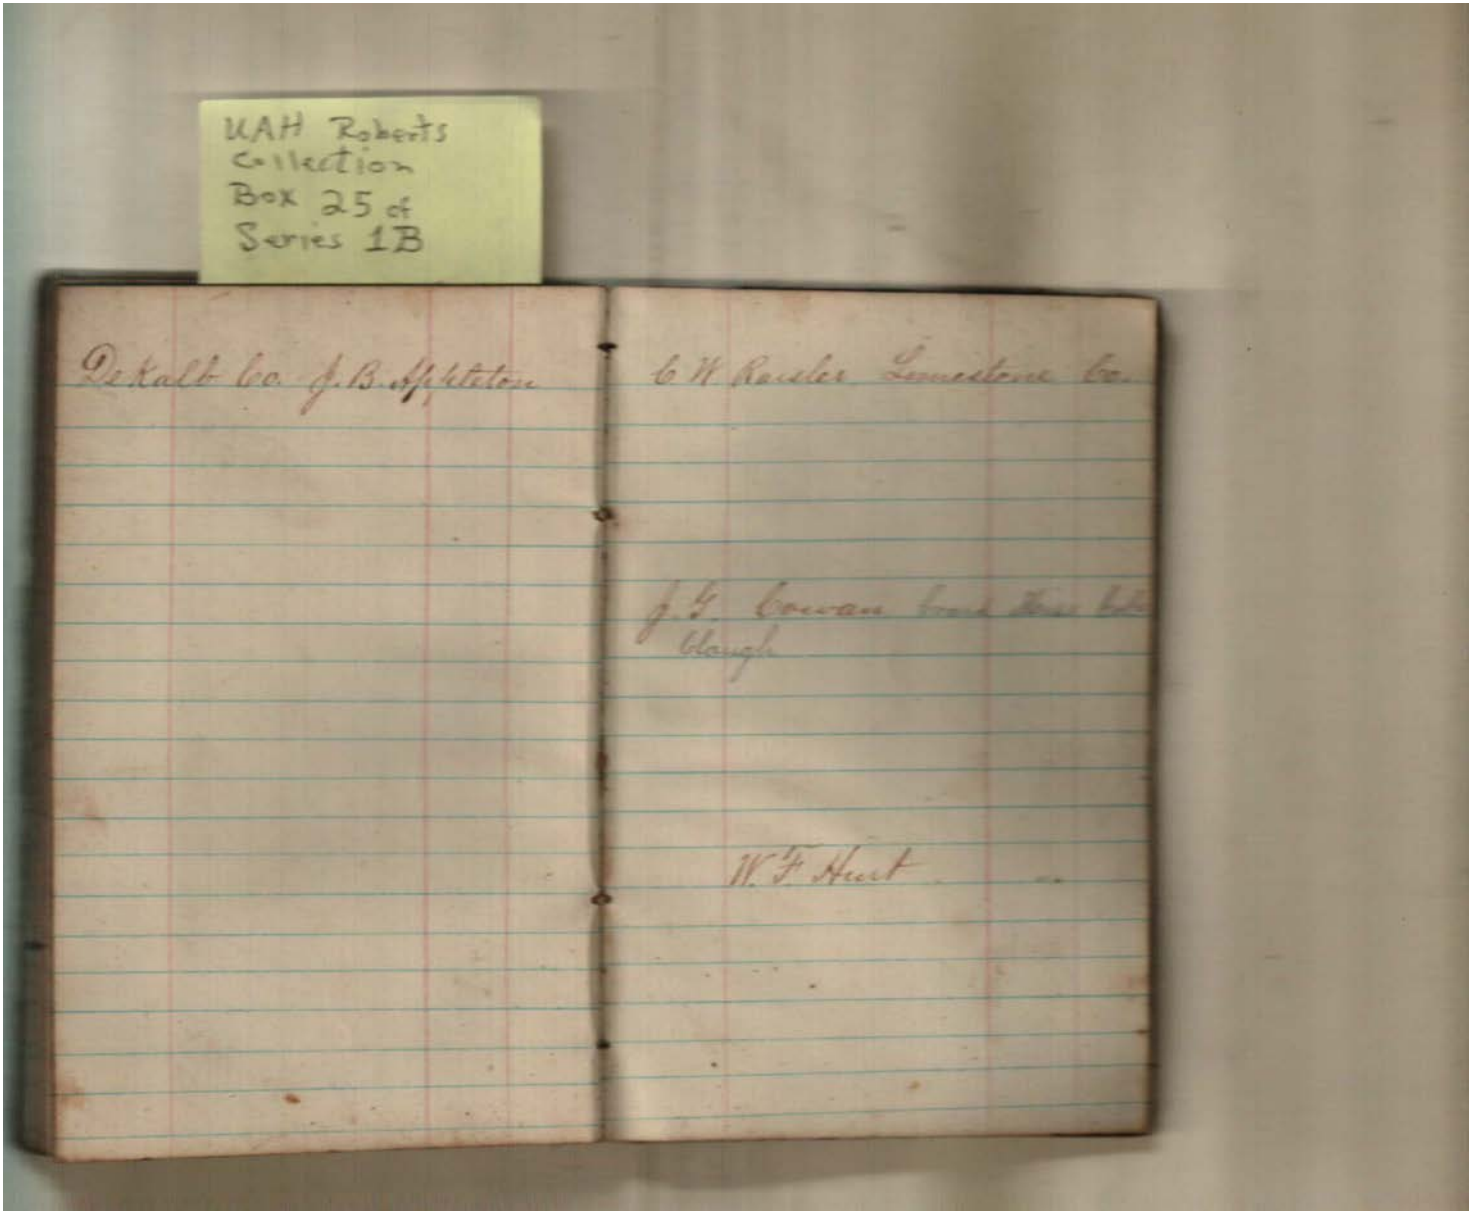 UAH Roberts
Collection
Box 25 of
Series 1B
DeKalb Co. J. B. Appleton
C W Raisler Limestone Co.
J. G. Cowan
Clough
W. F. Hurt